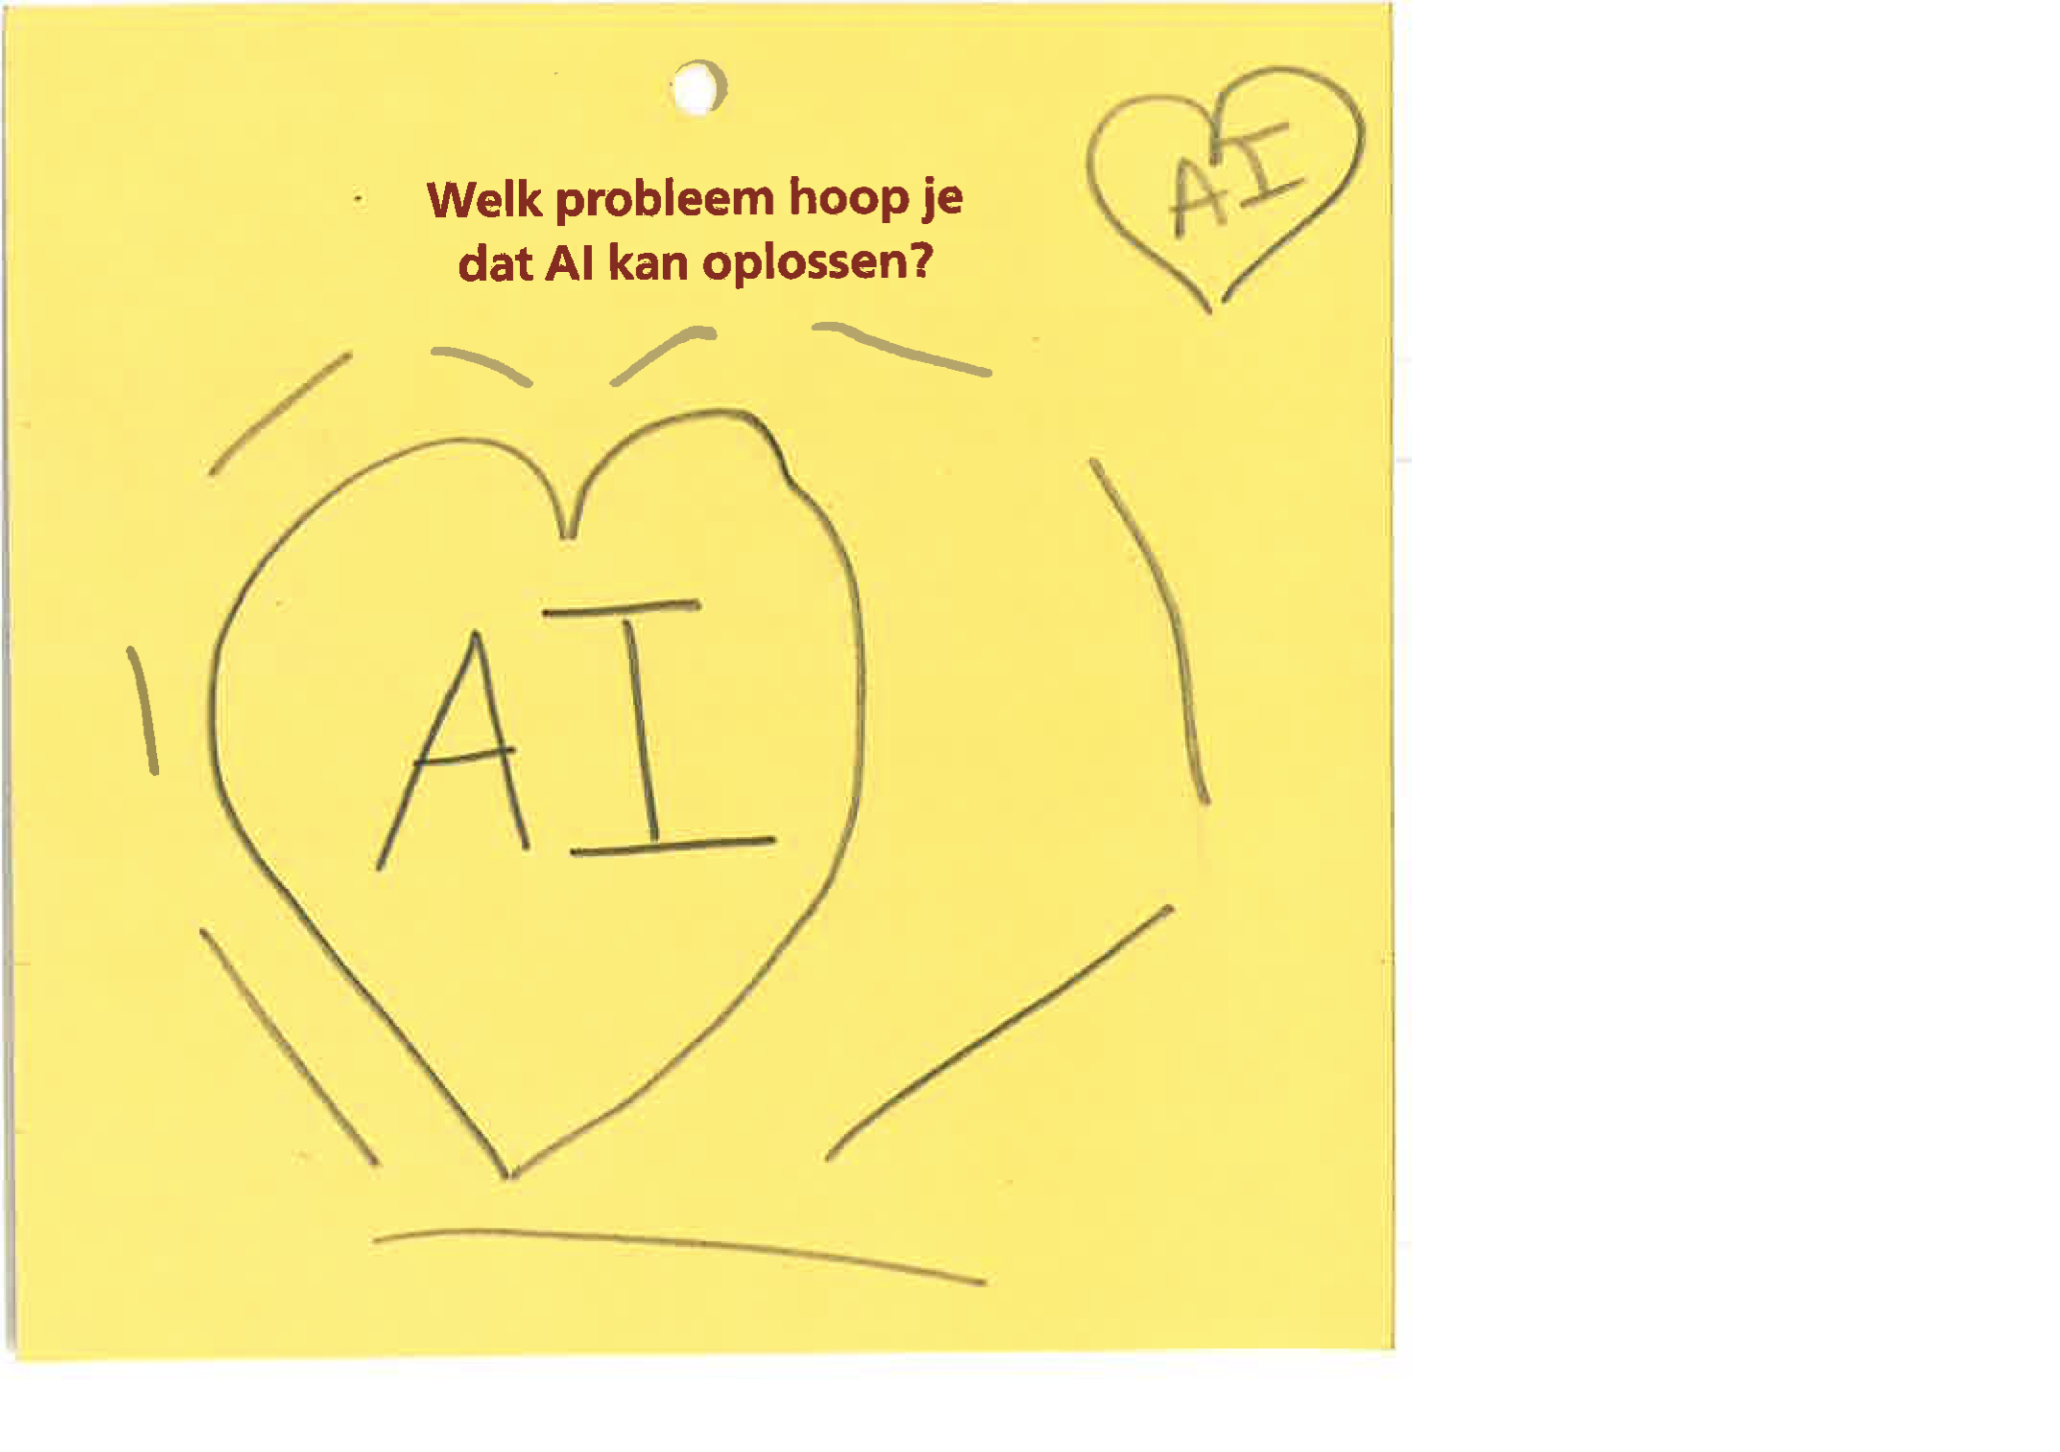 Welk probleem hoop je
dat AI kan oplossen?
AI
AI